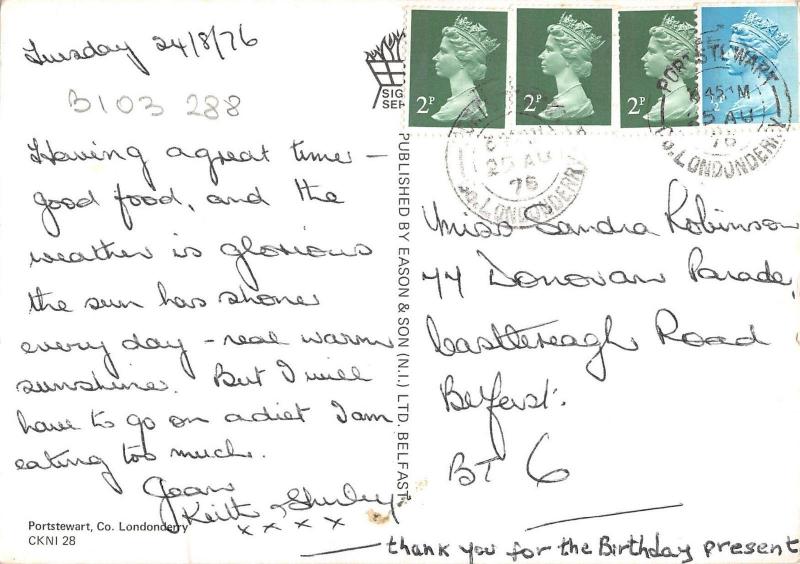 Tuesday 24/8/76
B103 288
Having a great time –
good food, and the
weather is glorious
the sun has shone
every day – real warm
sunshine. But I will
have to go on a diet I am
eating too much.
Jean
Keith & Shirley.
x x x x
Portstewart, Co. Londonderry
CKNI 28
PUBLISHED BY EASON & SON (N.I.) LTD. BELFAST.
SIG
SER
2P
2P
2P
½P
25 AU
76
CO. LONDONDERRY
PORTSTEWART
45 M
25 AU
76
CO. LONDONDERRY
Miss Sandra Robinson
44 Donovan Parade,
Castlereagh Road
Belfast.
BT 6
thank you for the Birthday present